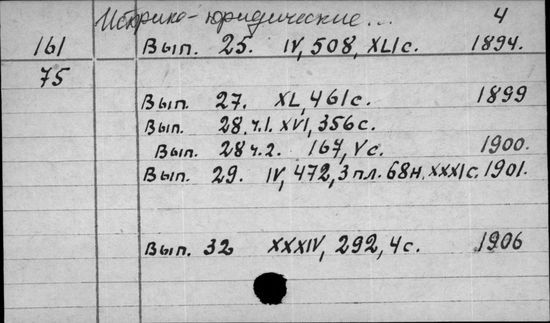 Историко-юридические... 4
161 Вып. 25. IV, 508, XLI с. 1894.
75
Вып. 27. XL, 461 с. 1899
Вып. 28, ч.1. XVI, 356 с.
Вып. 28 ч.2. 167, V с. 1900.
Вып. 29. IV, 472, 3 пл. 68н, XXXI с. 1901.
Вып. 32 XXXIV, 292, 4 с. 1906